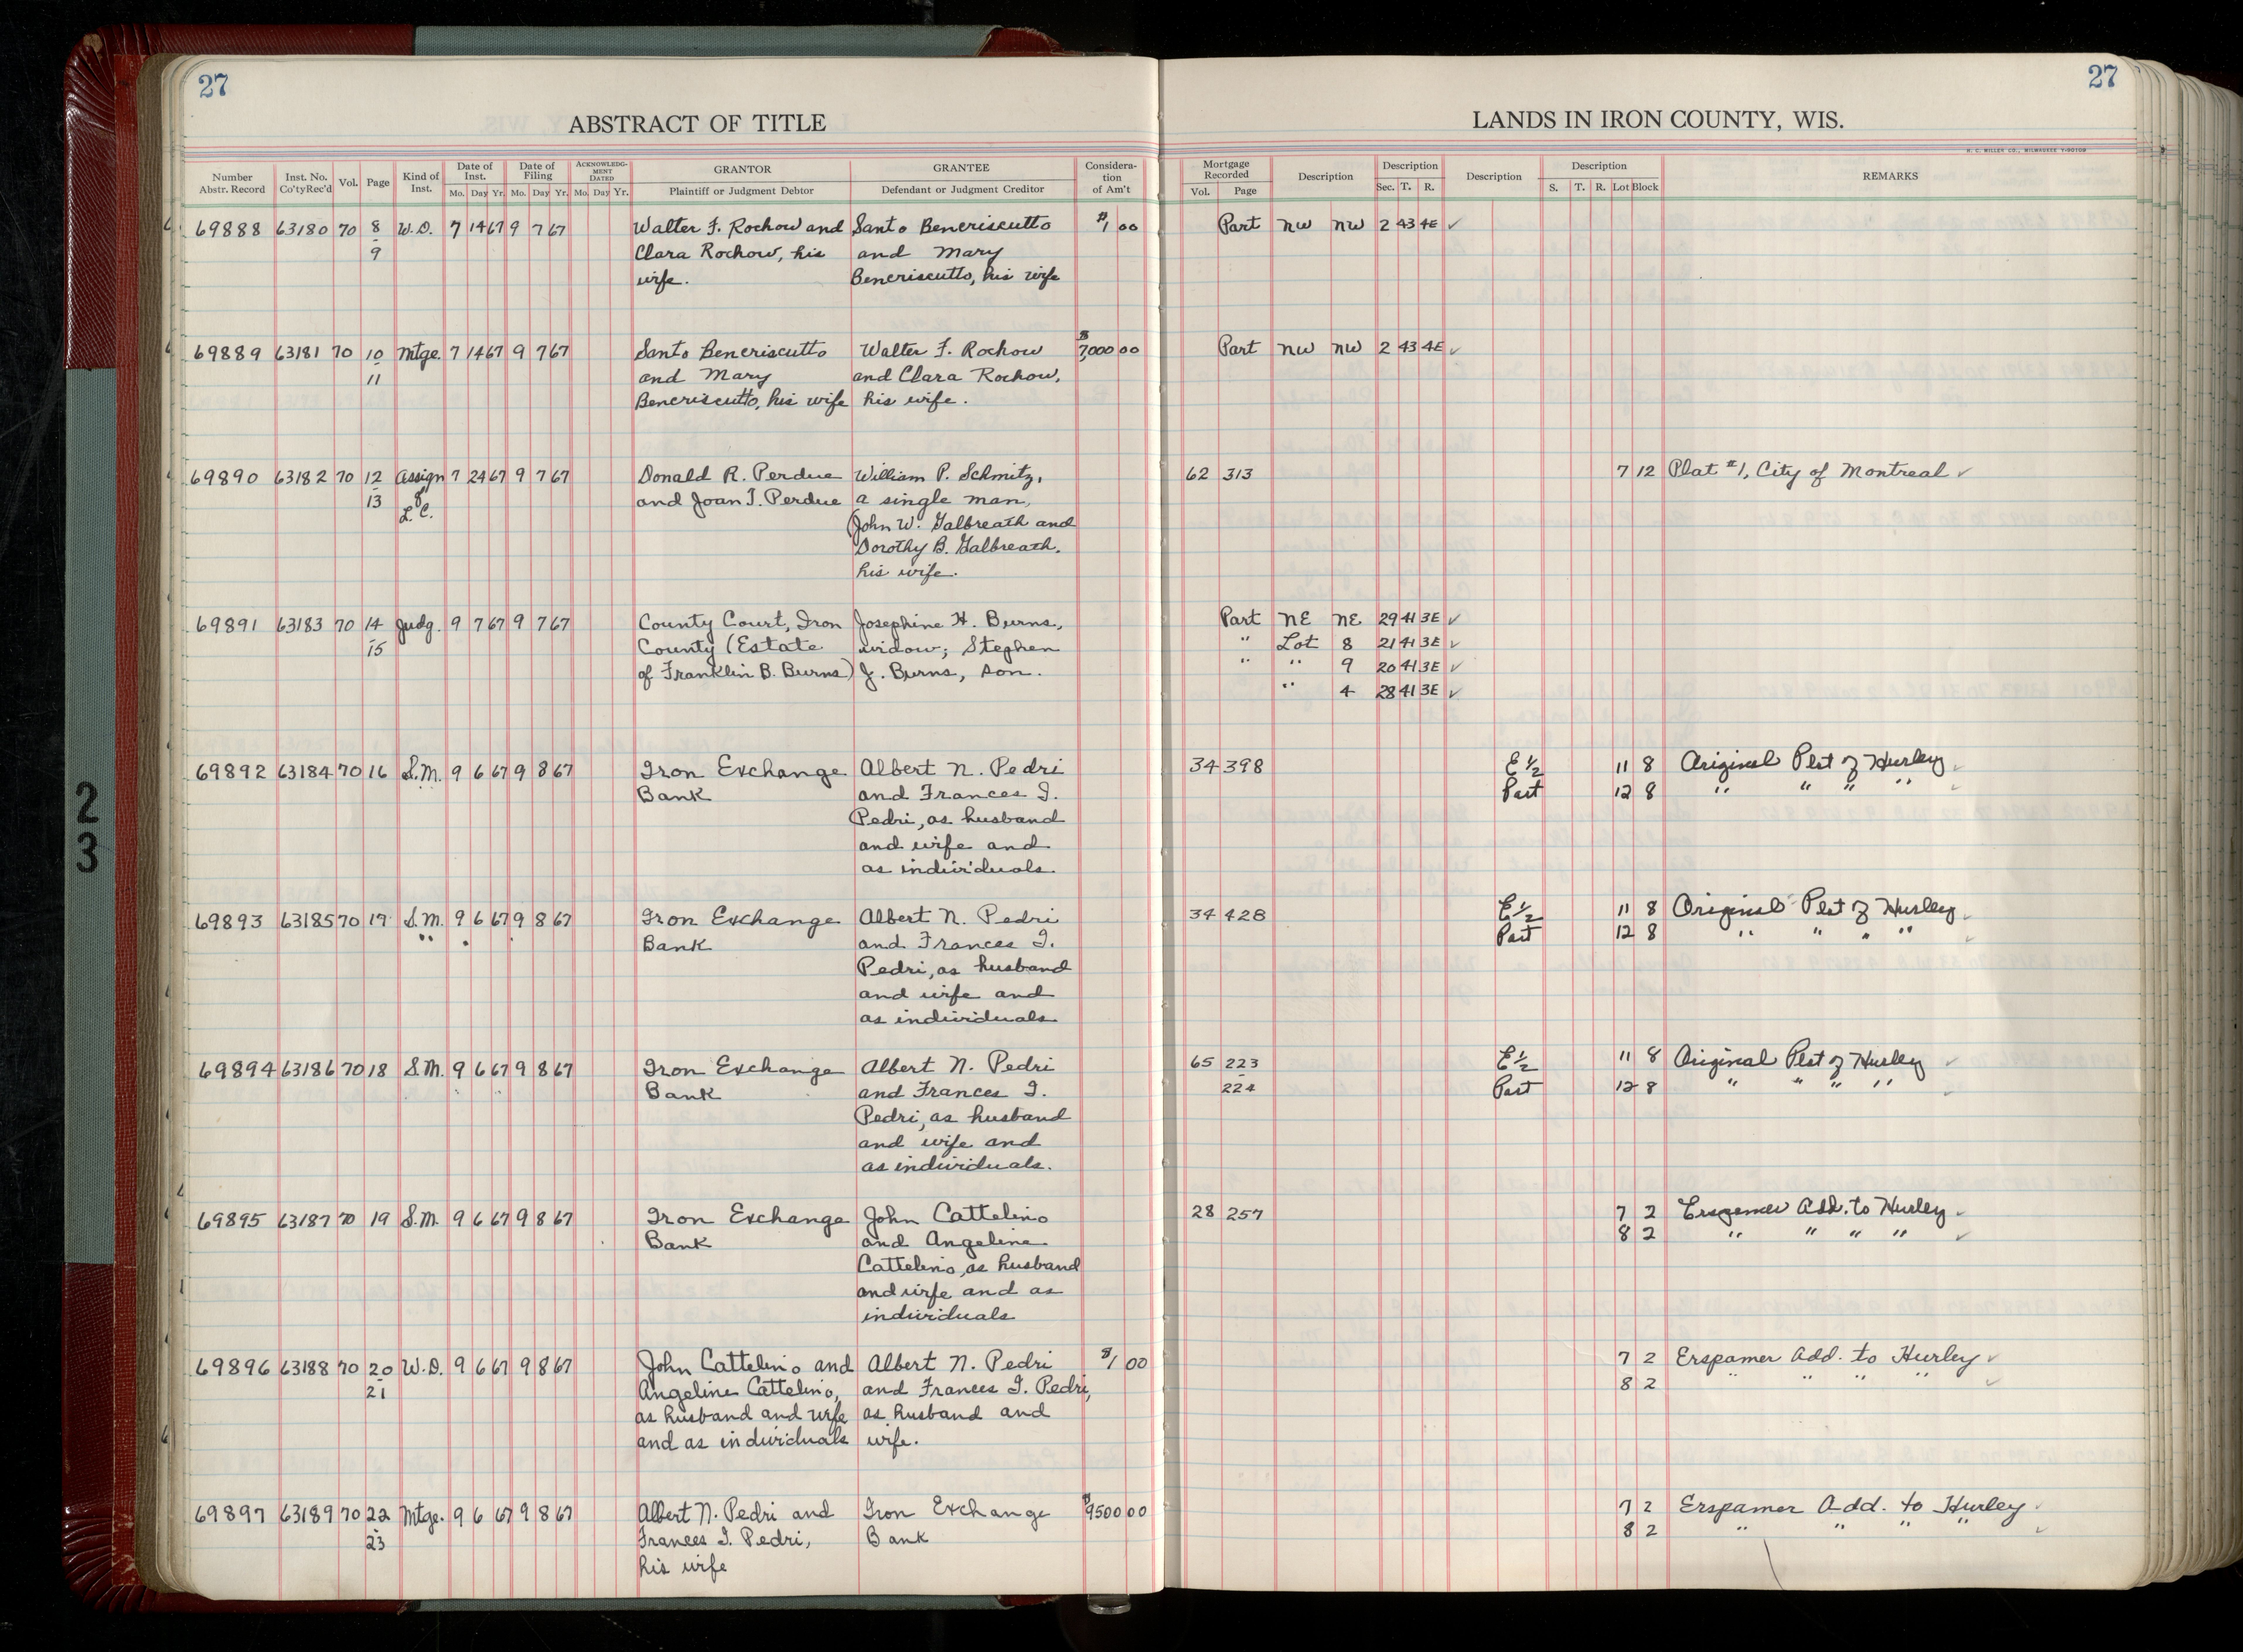 27
27
ABSTRACT OF TITLE
LANDS IN IRON COUNTY, WIS.
H. C. MILLER CO., MILWAUKEE
Number Abstr. Record | Inst. No. Co'ty Rec'd | Vol. | Page | Kind of Inst. | Date of Inst. Mo. Day Yr. | Date of Filing Mo. Day Yr. | ACKNOWLEDGMENT DATED Mo. Day Yr. | GRANTOR Plaintiff or Judgment Debtor | GRANTEE Defendant or Judgment Creditor | Consideration of Am't | Mortgage Recorded Vol. Page | Description | Description Sec. T. R. | Description | Description S. T. R. Lot Block | REMARKS
69888 63180 70 8 W.D. 7 14 67 9 7 67 Walter F. Rochow and Santo Bencriscutto $1 00 Part NW NW 2 43 4E ✓
9 Clara Rochow, his and Mary
wife. Bencriscutto, his wife
69889 63181 70 10 Mtge. 7 14 67 9 7 67 Santo Bencriscutto Walter F. Rochow $7,000 00 Part NW NW 2 43 4E ✓
11 and Mary and Clara Rochow,
Bencriscutto, his wife his wife.
69890 63182 70 12 Assign 7 24 67 9 7 67 Donald R. Perdue William P. Schmitz, 62 313 7 12 Plat #1, City of Montreal ✓
13 of and Joan I. Perdue a single man,
L.C. John W. Galbreath and
Dorothy B. Galbreath,
his wife.
69891 63183 70 14 Judg. 9 7 67 9 7 67 County Court, Iron Josephine H. Burns, Part NE NE 29 41 3E ✓
15 County (Estate widow; Stephen " Lot 8 21 41 3E ✓
of Franklin B. Burns) J. Burns, son. " " 9 20 41 3E ✓
" 4 28 41 3E ✓
69892 63184 70 16 S.M. 9 6 67 9 8 67 Iron Exchange Albert N. Pedri 34 398 E½ 11 8 Original Plat of Hurley ✓
Bank and Frances I. Part 12 8 " " " " ✓
Pedri, as husband
and wife and
as individuals.
69893 63185 70 17 S.M. 9 6 67 9 8 67 Iron Exchange Albert N. Pedri 34 428 E½ 11 8 Original Plat of Hurley ✓
Bank and Frances I. Part 12 8 " " " " ✓
Pedri, as husband
and wife and
as individuals
69894 63186 70 18 S.M. 9 6 67 9 8 67 Iron Exchange Albert N. Pedri 65 223 E½ 11 8 Original Plat of Hurley ✓
Bank and Frances I. 224 Part 12 8 " " " " ✓
Pedri, as husband
and wife and
as individuals.
69895 63187 70 19 S.M. 9 6 67 9 8 67 Iron Exchange John Cattelino 28 257 7 2 Erspamer Add. to Hurley ✓
Bank and Angeline 8 2 " " " " ✓
Cattelino, as husband
and wife and as
individuals
69896 63188 70 20 W.D. 9 6 67 9 8 67 John Cattelino and Albert N. Pedri $1 00 7 2 Erspamer Add. to Hurley ✓
21 Angeline Cattelino, and Frances I. Pedri, 8 2 " " " " ✓
as husband and wife as husband and
and as individuals wife.
69897 63189 70 22 Mtge. 9 6 67 9 8 67 Albert N. Pedri and Iron Exchange $9500 00 7 2 Erspamer Add. to Hurley ✓
23 Frances I. Pedri, Bank 8 2 " " " " ✓
his wife
2
3